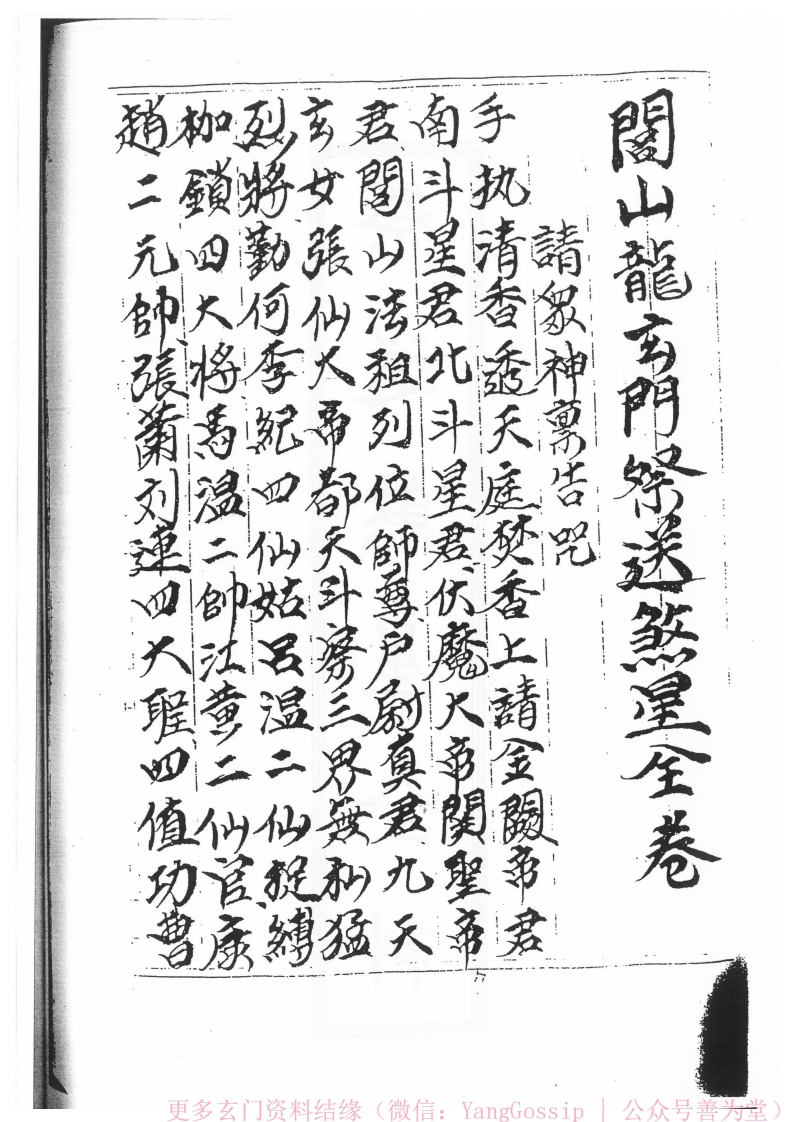 閭山龍玄門祭送煞星全巻
請眾神禀告咒
手执清香透天庭焚香上請金闕帝君
南斗星君北斗星君伏魔大帝関聖帝
君閭山法祖列位師尊户尉真君九天
玄女張仙大帝都天斗察三界無私猛
烈將勤何李紀四仙姑呂温二仙捉縛
枷鎖四大将馬温二帥江黄二仙官康
趙二元帥張蕭刘連四大聖四值功曹
六
更多玄门资料结缘（微信：YangGossip | 公众号善为堂）